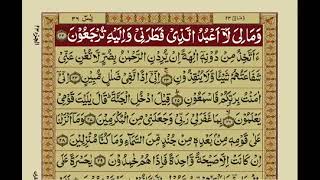 يٰسٓ ٣٦ ومالی ٢٣
وَمَا لِيَ لَآ اَعْبُدُ الَّذِيْ فَطَرَنِيْ وَاِلَيْهِ تُرْجَعُوْنَ ﴿٢٢﴾
ءَاَتَّخِذُ مِنْ دُوْنِهٖٓ اٰلِهَةً اِنْ يُّرِدْنِ الرَّحْمٰنُ بِضُرٍّ لَّا تُغْنِ عَنِّيْ
شَفَاعَتُهُمْ شَيْـًٔا وَّلَا يُنْقِذُوْنِ ﴿٢٣﴾ اِنِّيْٓ اِذًا لَّفِيْ ضَلٰلٍ مُّبِيْنٍ ﴿٢٤﴾ اِنِّيْٓ
اٰمَنْتُ بِرَبِّكُمْ فَاسْمَعُوْنِ ﴿٢٥﴾ قِيْلَ ادْخُلِ الْجَنَّةَ ؕ قَالَ يٰلَيْتَ قَوْمِيْ
يَعْلَمُوْنَ ﴿٢٦﴾ بِمَا غَفَرَ لِيْ رَبِّيْ وَجَعَلَنِيْ مِنَ الْمُكْرَمِيْنَ ﴿٢٧﴾ وَمَآ اَنْزَلْنَا
عَلٰى قَوْمِهٖ مِنْۢ بَعْدِهٖ مِنْ جُنْدٍ مِّنَ السَّمَآءِ وَمَا كُنَّا مُنْزِلِيْنَ ﴿٢٨﴾
اِنْ كَانَتْ اِلَّا صَيْحَةً وَّاحِدَةً فَاِذَا هُمْ خٰمِدُوْنَ ﴿٢٩﴾ يٰحَسْرَةً عَلَى